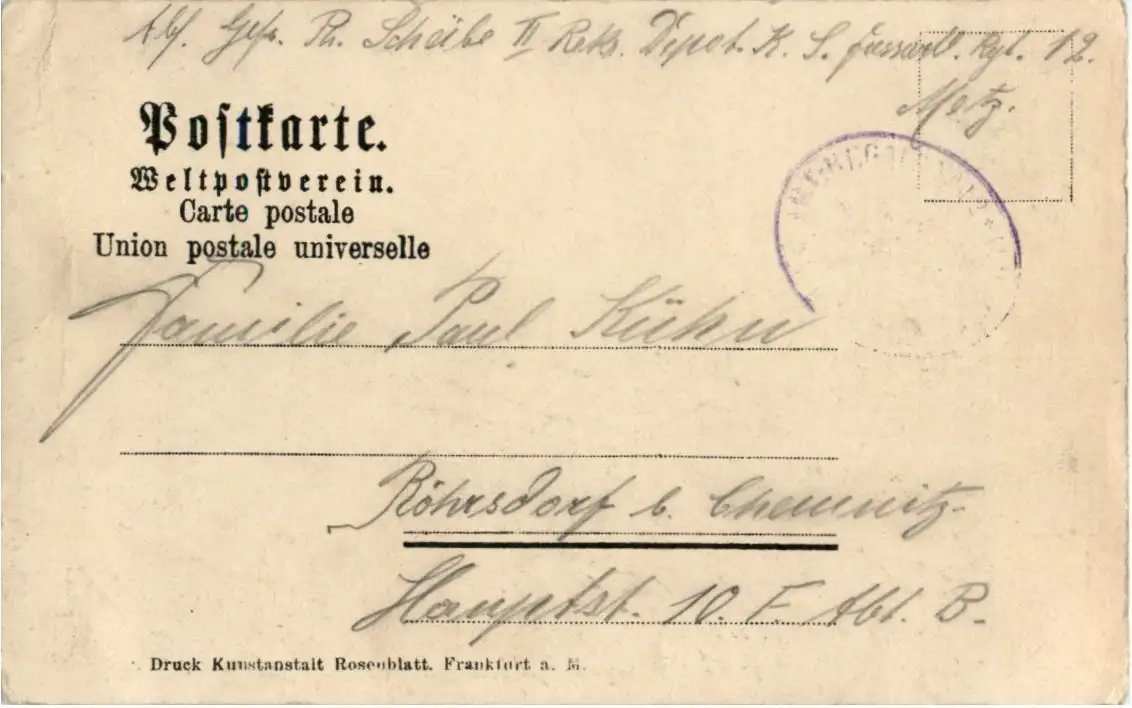 Abs. Gefr. Th. Scheibe II Rekr. Depot. K. S. Fussartl. Rgt. 12.
Metz.
Postkarte.
Weltpostverein.
Carte postale
Union postale universelle
Familie Paul Kühn
Röhrsdorf b. Chemnitz
Hauptst. 10. F. Abt. B.
Druck Kunstanstalt Rosenblatt. Frankfurt a. M.